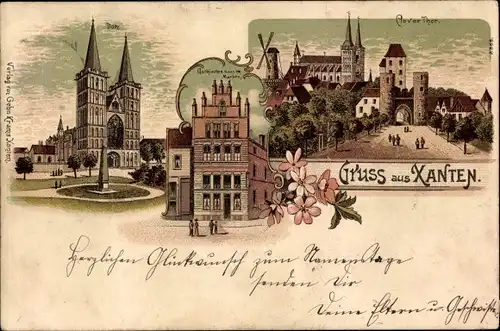 Dom.
Clever Thor.
Gothisches Haus in
Xanten.
Verlag von Gebr. Krams, Xanten.
GRUSS AUS XANTEN.
Herzlichen Glückwunsch zum Namenstage
senden Dir
Deine Eltern u. Geschwister